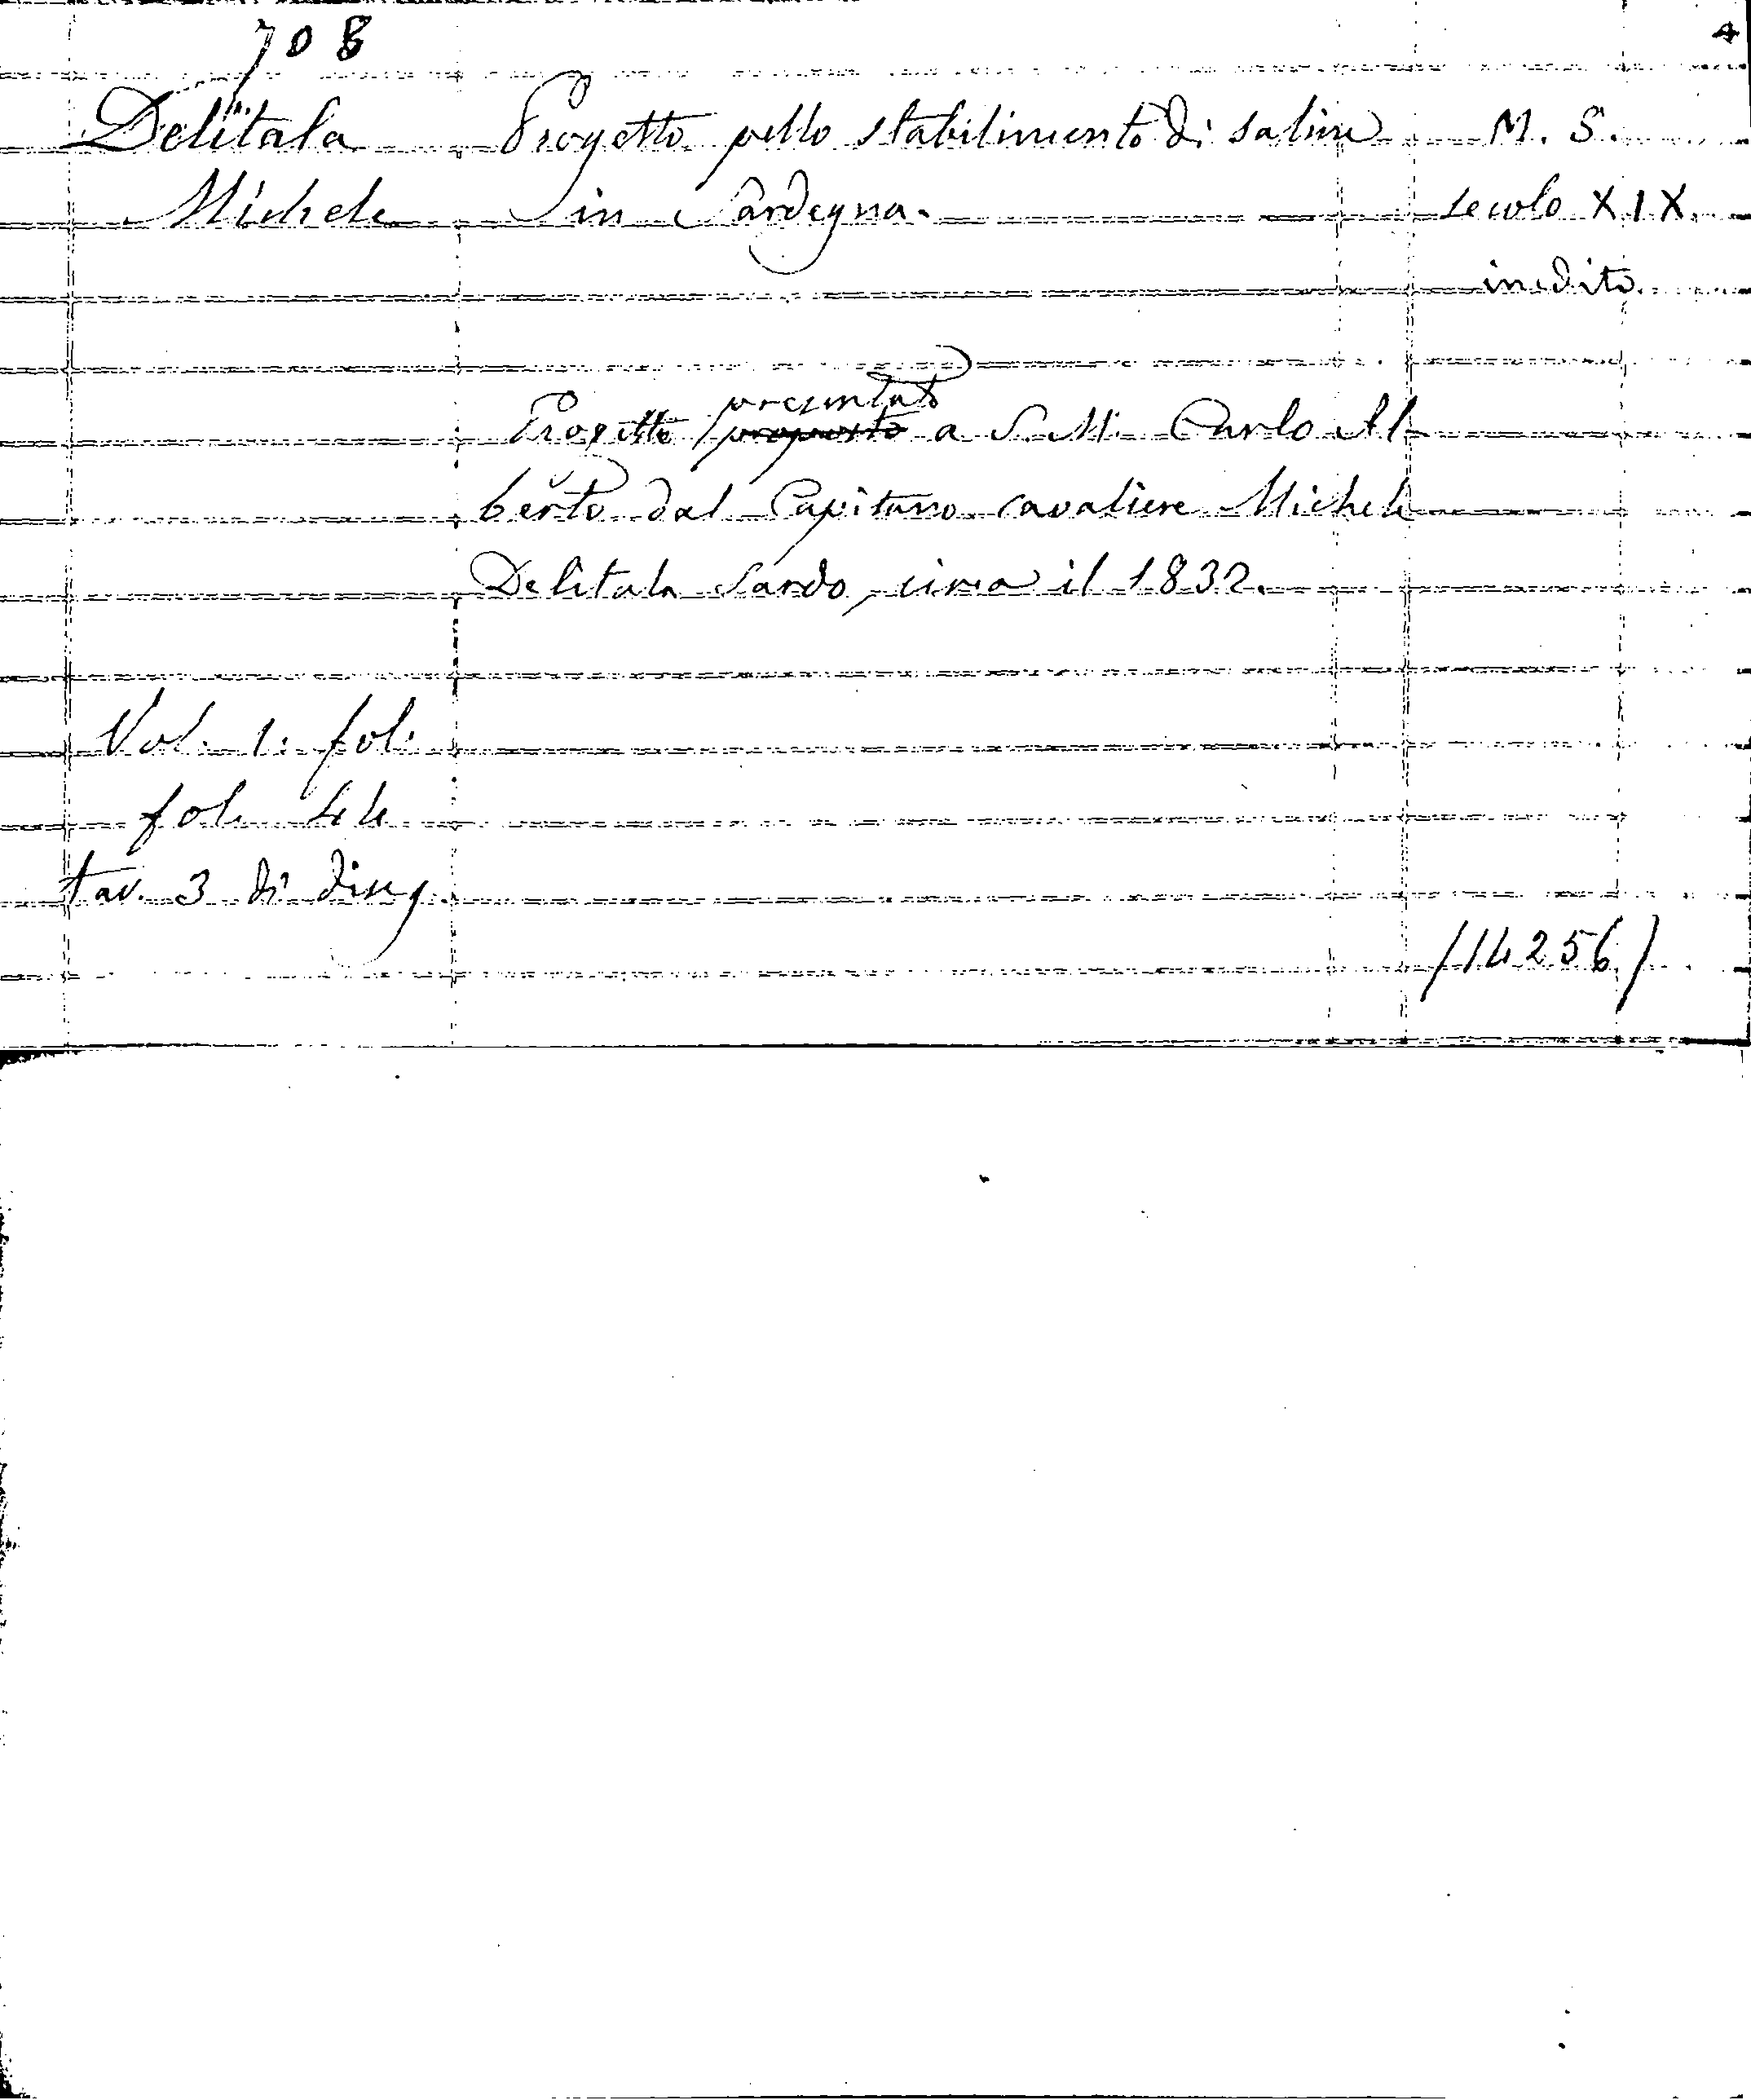 708
4
Delitala Progetto pello stabilimento di saline M. S.
Michele in Sardegna. secolo XIX.
inedito.
presentato
Progetto proposto a S. M. Carlo Al
berto dal Capitano cavaliere Michele
Delitala Sardo, circa il 1832.
Vol. 1. fol.
fol. 44
tav. 3 di diseg.
/14256/